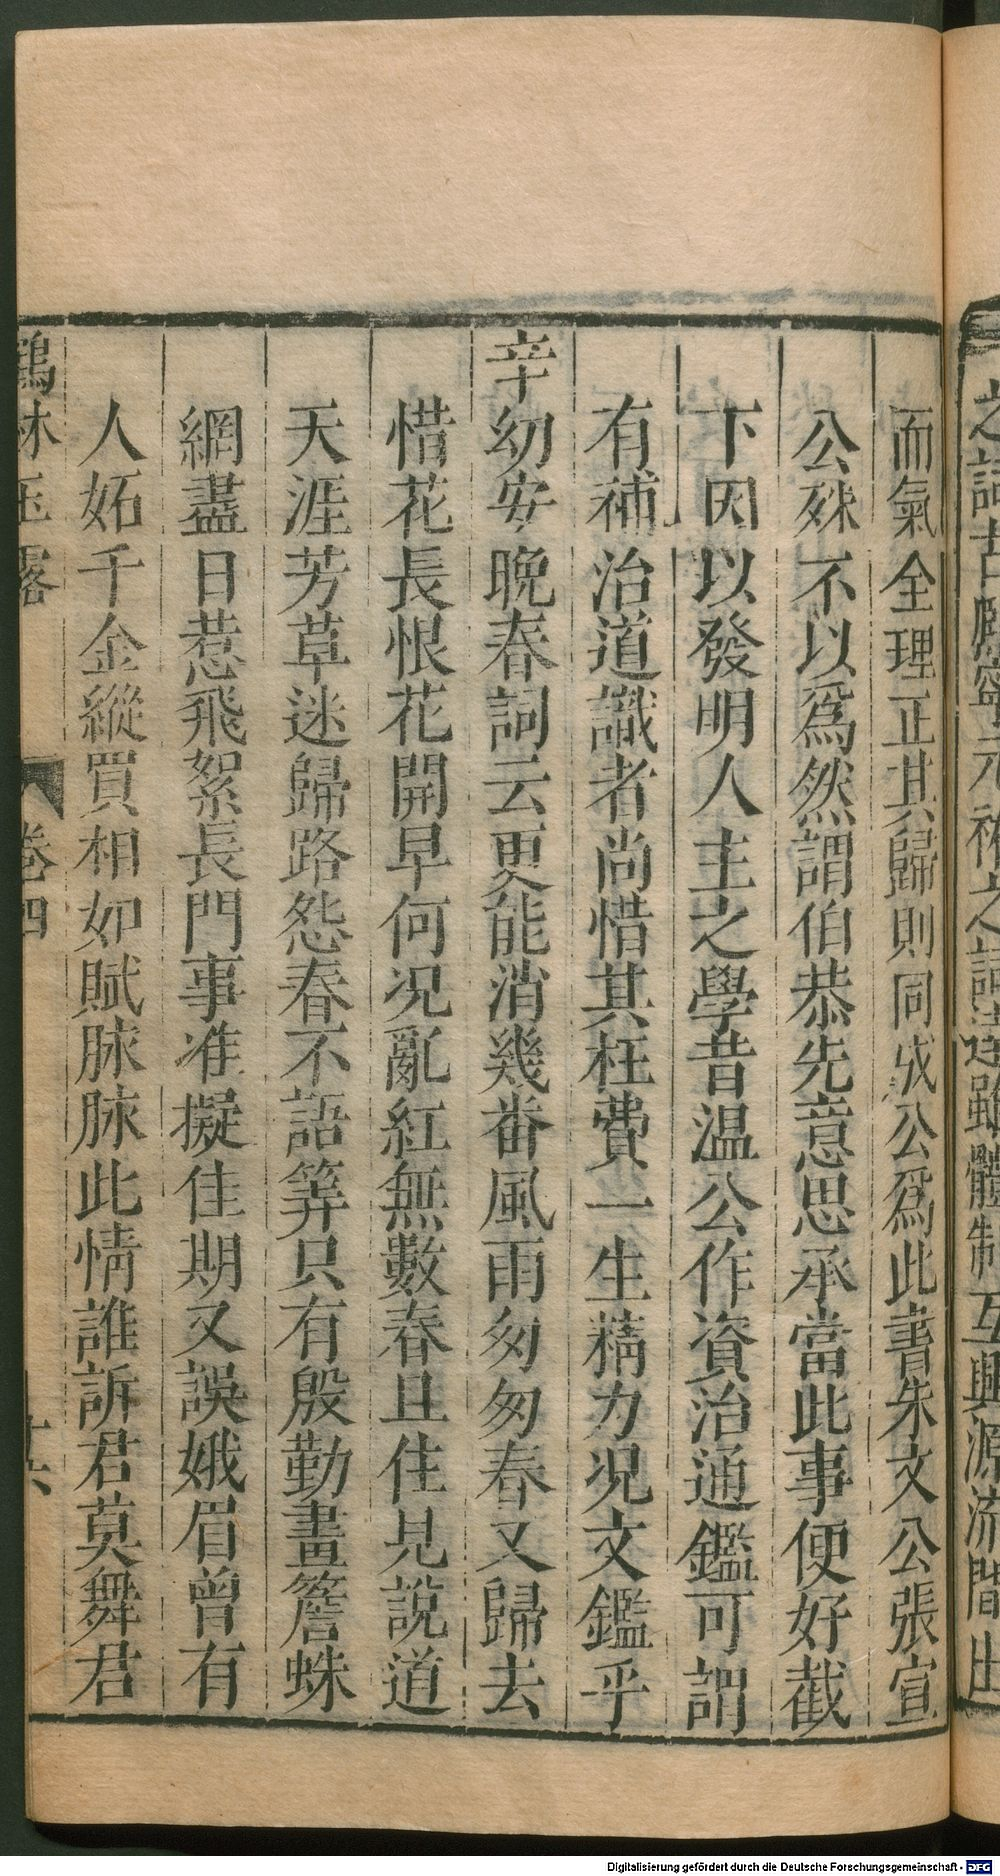 之詞古雅寧元祐之詞達雖體制互興源流間出
而氣全理正其歸則同成公爲此書朱文公張宣
公殊不以爲然謂伯恭先意思承當此事便好截
下因以發明人主之學昔温公作資治通鑑可謂
有補治道識者尚惜其枉費一生精力况文鑑乎
辛幼安晚春詞云更能消幾番風雨匆匆春又歸去
惜花長恨花開早何况亂紅無數春且住見說道
天涯芳草迷歸路怨春不語筭只有殷勤畫簷蛛
網盡日惹飛絮長門事准擬佳期又誤娥眉曾有
人妬千金縱買相如賦脉脉此情誰訴君莫舞君
鶴林玉露 卷四 十六
Digitalisierung gefördert durch die Deutsche Forschungsgemeinschaft - DFG